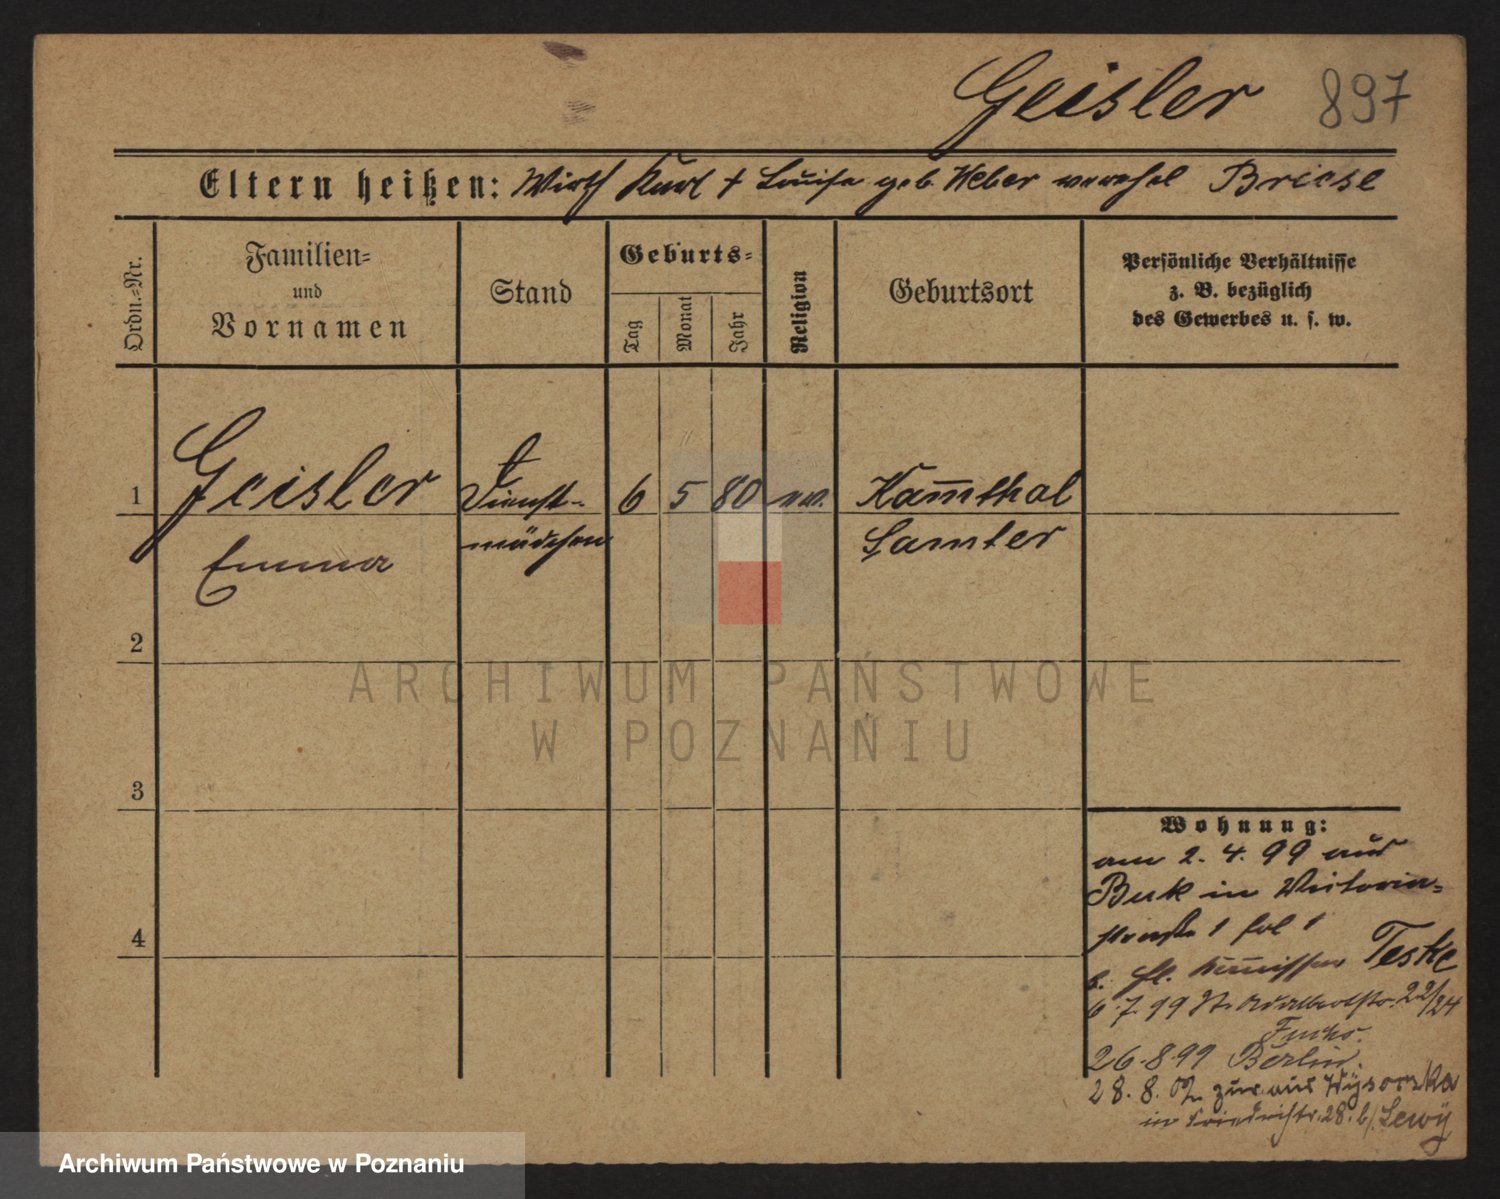 Geisler 897
Eltern heißen: Wirth Karl † Louise geb. Weber verehel Briese
Ordn.-Nr.
Familien-
und
Vornamen
Stand
Geburts-
Tag
Monat
Jahr
Religion
Geburtsort
Persönliche Verhältnisse
z. B. bezüglich
des Gewerbes u. s. w.
1 Geisler Dienst- 6 5 80 ev. Kamthal
Emma mädchen Samter
2
3
4
ARCHIWUM PAŃSTWOWE
W POZNANIU
Wohnung:
am 2. 4. 99 aus
Buk in Victoria-
straße 1
b. Teske
6.7.99 St. Adalbertstr. 22/24
Fuchs.
26.8.99 Berlin.
28. 8. zur. aus Wysoczka
in Friedrichstr. 28. b/. Lewy
Archiwum Państwowe w Poznaniu